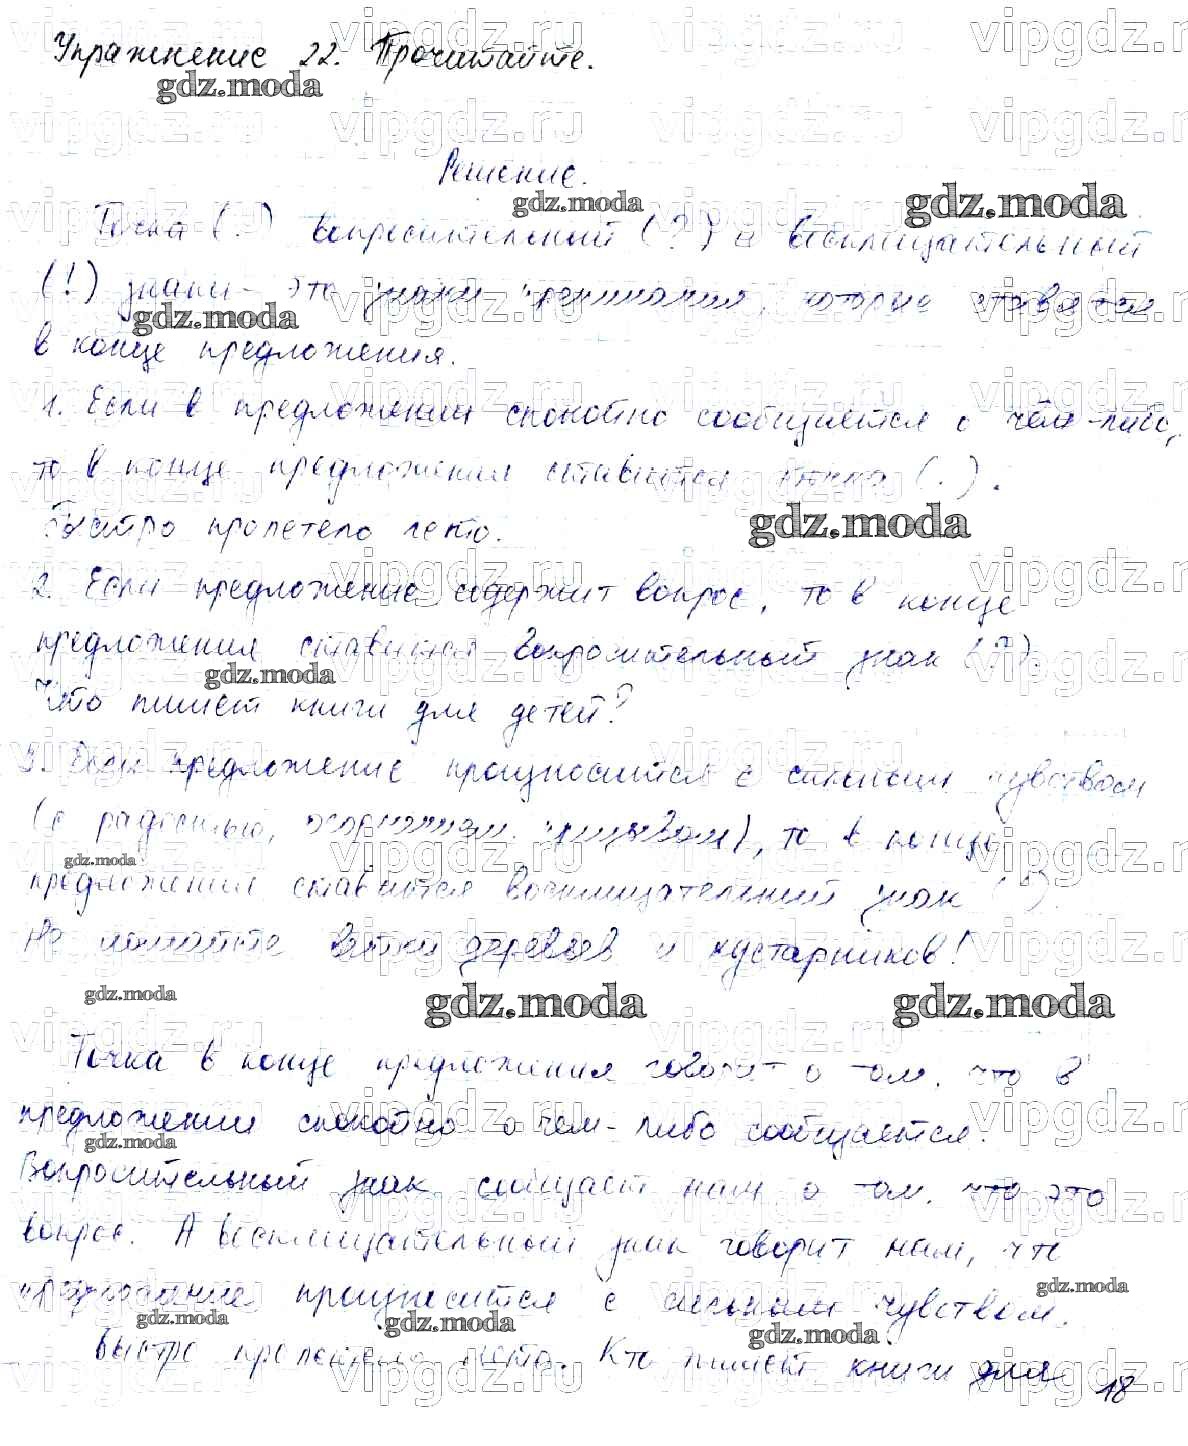 Упражнение 22. Прочитайте.
Решение.
Точка (.) вопросительный (?) и восклицательный
(!) знаки - это знаки препинания, которые ставятся
в конце предложения.
1. Если в предложении спокойно сообщается о чём-либо,
то в конце предложения ставится точка (.).
Быстро пролетело лето.
2. Если предложение содержит вопрос, то в конце
предложения ставится вопросительный знак (?).
Кто пишет книги для детей?
3. Если предложение произносится с сильным чувством
(с радостью, призывом), то в конце
предложения ставится восклицательный знак (!).
Не ломайте ветки деревьев и кустарников!
Точка в конце предложения говорит о том, что в
предложении спокойно о чем-либо сообщается.
Вопросительный знак сообщает нам о том, что это
вопрос. А восклицательный знак говорит нам, что
предложение произносится с сильным чувством.
Быстро пролетело лето. Кто пишет книги для
18
gdz.moda
vipgdz.ru